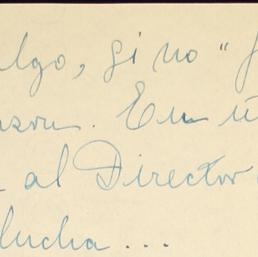 algo, si no "
En
al Director
lucha...